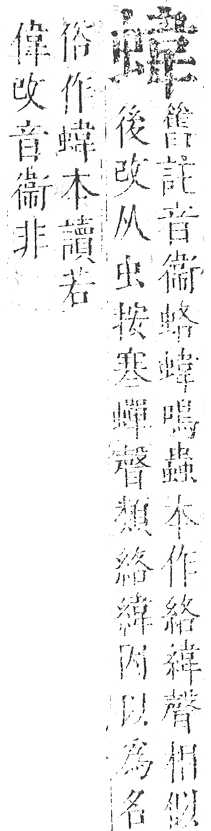 舊註音衞蛒鳴蟲本作絡緯聲相似
後改从虫按寒蟬聲類絡緯因以為名
俗作本讀若
偉改音衞非